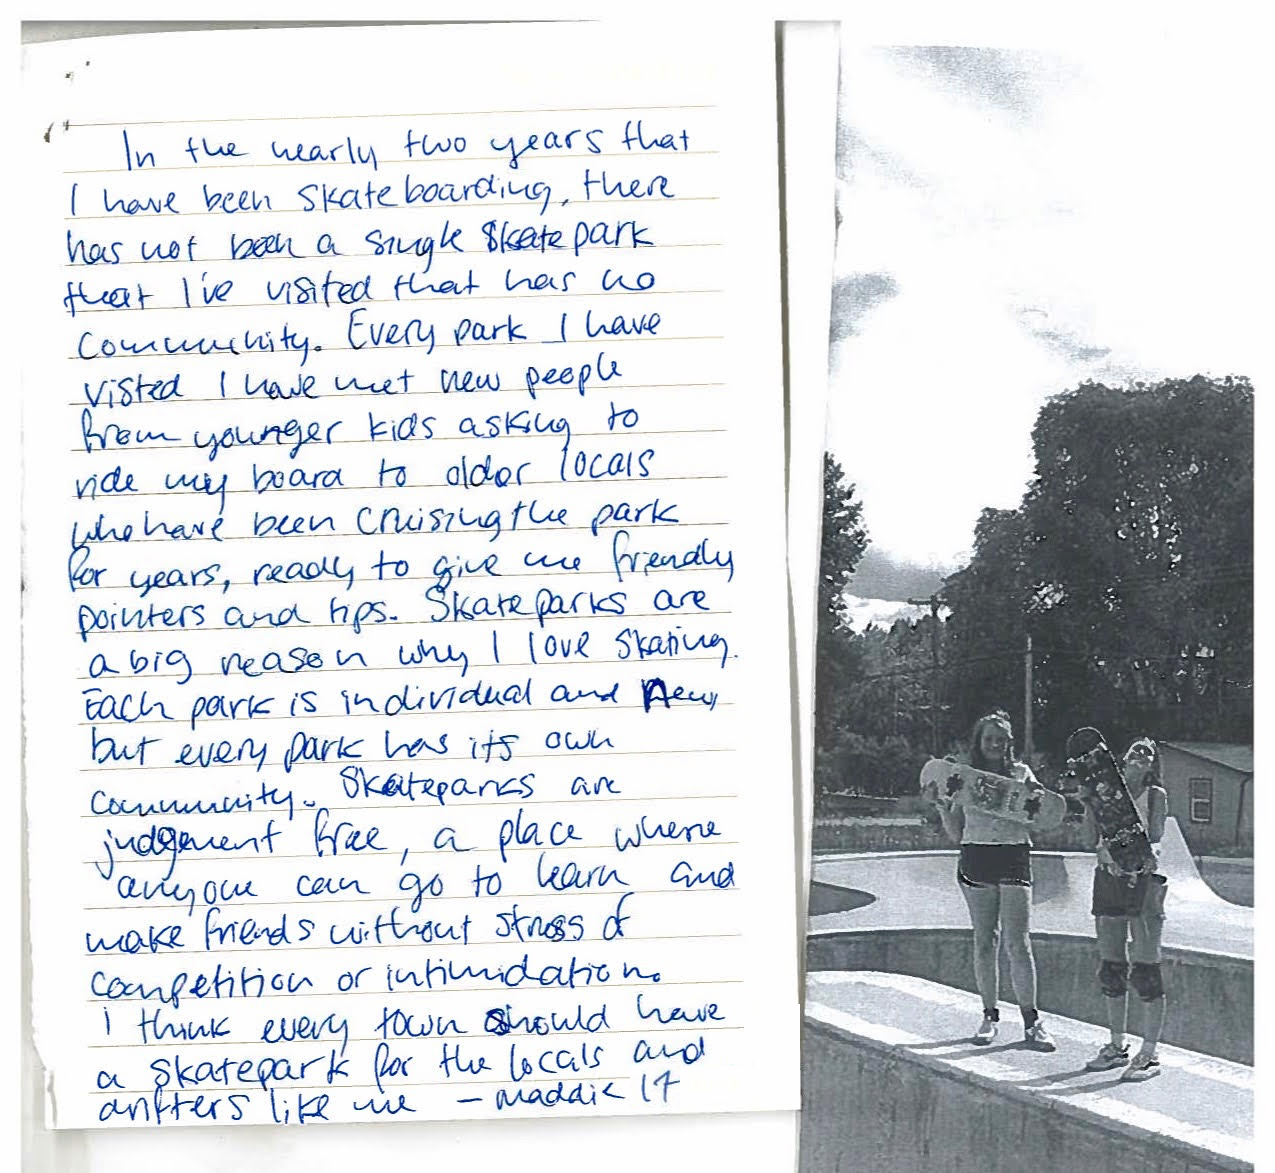 In the nearly two years that
I have been skateboarding, there
has not been a single skatepark
that I've visited that has no
community. Every park I have
visted I have met new people
from younger kids asking to
ride my board to older locals
who have been cruising the park
for years, ready to give me friendly
pointers and tips. Skateparks are
a big reason why I love skating.
Each park is individual and new,
but every park has its own
community. Skateparks are
judgement free, a place where
anyone can go to learn and
make friends without stress of
competition or intimidation.
I think every town should have
a skatepark for the locals and
drifters like me - maddie 17